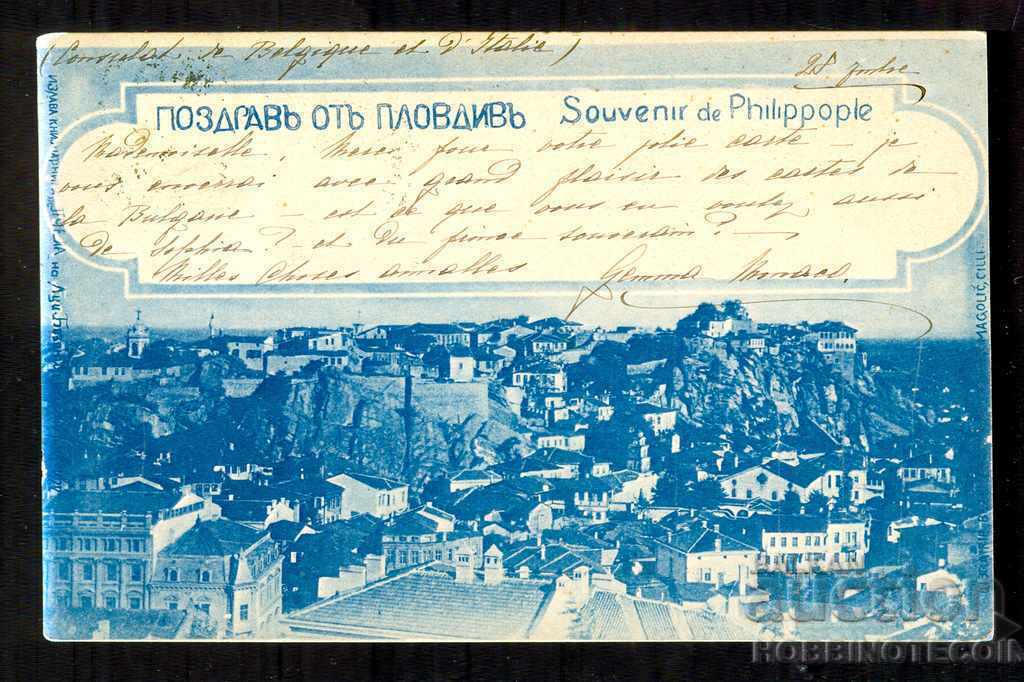 (Consulat de Belgique et d'Italie)
28 9mbre
ПОЗДРАВЪ ОТЪ ПЛОВДИВЪ Souvenir de Philippople
Mademoiselle, Merci pour votre jolie carte — je
vous enverrai avec grand plaisir des cartes de
la Bulgarie — est ce que vous en voulez aussi
de Sophia? — et du prince souverain? —
Milles choses aimables Gemma
MAGOLIČ, CILLI.
ИЗДАВА
auction
HOBBINOTECOIN